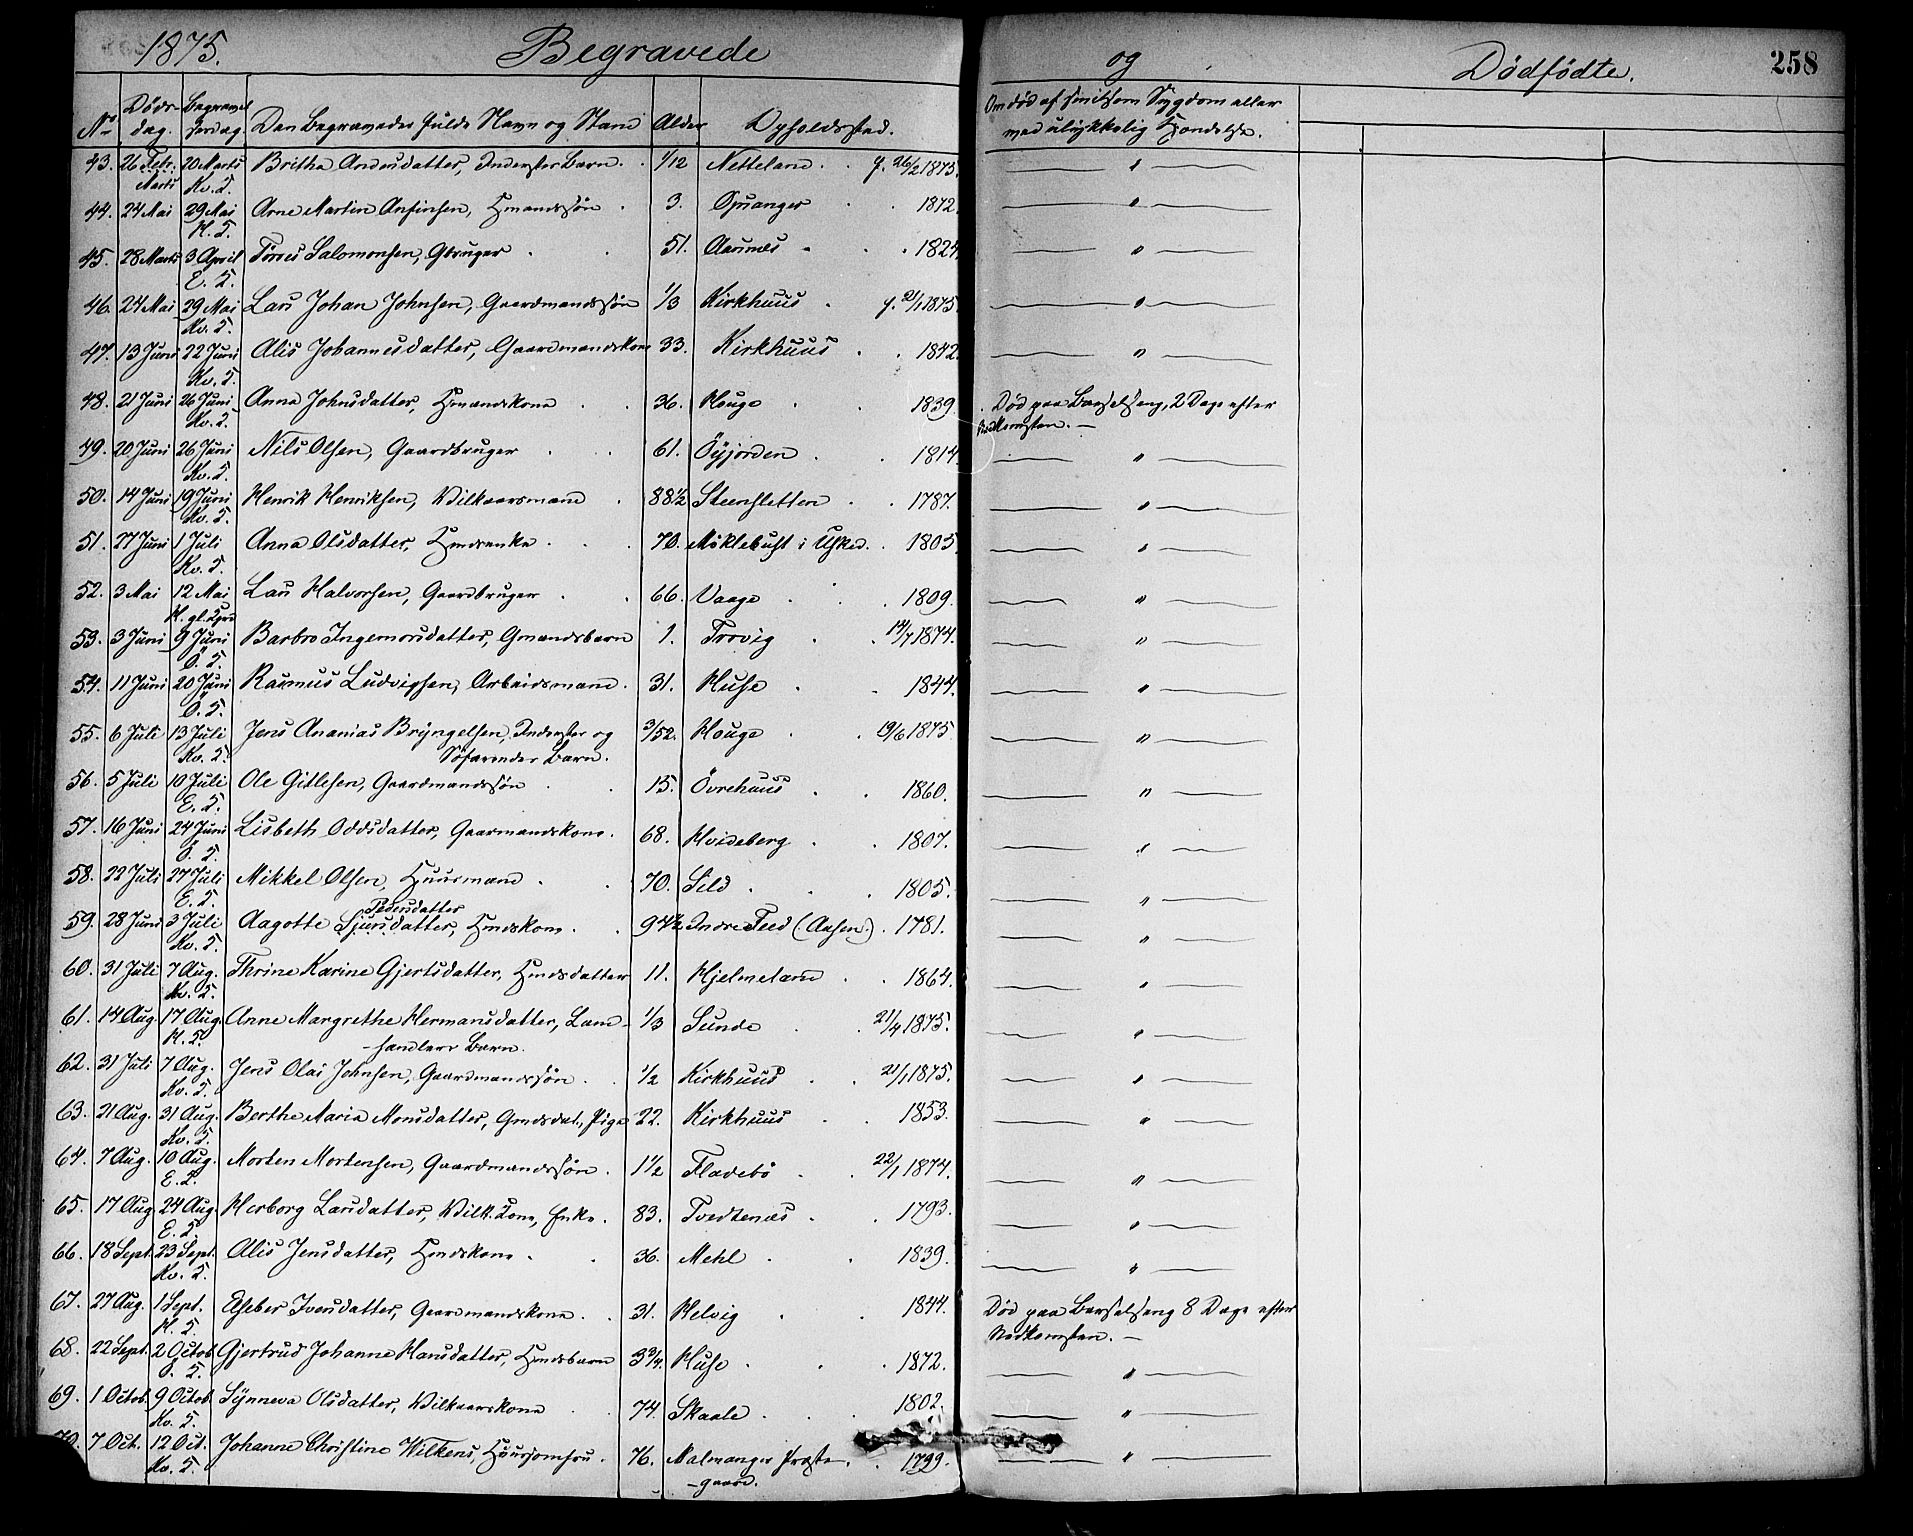 1875. Begravede og Dødfødte. 258
No Døds-dag. Begravelsesdag. Den Begravedes fulde Navn og Stand Alder Opholdssted. Om død af smitsom Sygdom eller
ved ulykkelig Hændelse.
43. 26 Febr. 20 Marts Britha Andersdatter, Inderster Barn. 1/12 Netteland f. 26/2 1875. "
Marts Kv. S.
44. 24 Mai 29 Mai Arne Martin Anfinsen, Hmandssøn 3. Opsanger 1872. "
H. S.
45. 28 Marts 3 April Tørres Salomonsen, Gbruger 51. Aarsnes 1824. "
E. S.
46. 24 Mai 29 Mai Lars Johan Johnsen, Gaardmandssøn 1/3 Kirkhuus f. 21/1 1875. "
Kv. S.
47. 13 Juni 22 Juni Alis Johannesdatter, Gaardmandskone 33. Kirkhuus 1842. "
Kv. S.
48. 21 Juni 26 Juni Anna Johnsdatter, Hmandskone 36. Houge 1839. Død paa Barselseng, 2 Dage efter
Kv. S. Nedkomsten. —
49. 20 Juni 26 Juni Nils Olsen, Gaardbruger 61. Öyjorden 1814. "
Kv. S.
50. 14 Juni 19 Juni Henrik Henriksen, Wilkaarsmand 88 1/2 Steensletten 1787. "
Kv. S.
51. 27 Juni 1 Juli Anna Olsdatter, Hmdsenke 70. Møklebust i Usked. 1805. "
Kv. S.
52. 3 Mai 12 Mai Lars Halvorsen, Gaardbruger 66. Vaage 1809. "
H. gl.
53. 3 Juni 9 Juni Barbro Ingemorsdatter, Gmandsbarn 1. Trovig 14/7 1874. "
Ö. S.
54. 11 Juni 20 Juni Rasmus Ludvigsen, Arbeidsmand. 31. Huse 1844. "
Ö. S.
55. 6 Juli 13 Juli Jens Ananias Bryngelsen, Inderster og 3/52. Houge 19/6 1875 "
Kv. S. Söfarendes Barn.
56. 5 Juli 10 Juli Ole Gitlesen, Gaardmandssøn 15. Övrehuus 1860. "
E. S.
57. 16 Juni 24 Juni Lisbeth Oddsdatter, Gaarmandskone. 68. Hvideberg 1807. "
Ö. S.
58. 22 Juli 27 Juli Mikkel Olsen, Huusmand 70. Seld 1805. "
E. S.
Pedersdatter
59. 28 Juni 3 Juli Aagotte Sjursdatter, Hmdskone 94 1/2 Indre Teed (Aasen.) 1781. "
Kv. S.
60. 31 Juli 7 Aug. Thrine Karine Gjertsdatter, Hmdsdatter 11. Hjelmeland 1864. "
Kv. S.
61. 14 Aug 17 Aug. Anne Margrethe Hermansdatter, Land- 1/3 Sunde 21/4 1875. "
H. S. -handlers Barn.
62. 31 Juli 7 Aug. Jens Olai Johnsen, Gaardmandssøn 1/2 Kirkhuus 21/1 1875. "
Kv. S.
63. 21 Aug. 31 Aug. Berthe Maria Monsdatter, Gmdsdat., Pige 22. Kirkhuus 1853. "
Kv. S.
64. 7 Aug. 10 Aug. Morten Mortensen, Gaardmandssøn 1 1/2 Fladebö 22/1 1874. "
E. S.
65. 17 Aug 24 Aug. Herborg Larsdatter, Wilk. Kone, Enke. 83. Tvedtenæs 1793. "
E. S.
66. 18 Sept. 23 Sept. Alis Jensdatter, Hmdskone 36. Mehl 1839. "
Kv. S.
67. 27 Aug. 1 Sept. Eseber Iversdatter, Gaardmandskone. 31. Helvig 1844. Død paa Barselseng 8 Dage efter
H. S. Nedkomsten. —
68. 22 Sept. 2 Octob. Gjertrud Johanne Hansdatter, Hmdsbarn 3 3/4. Huse 1872. "
Ö. S.
69. 1 Octob. 9 Octob Synneva Olsdatter, Wilkaarskone 74. Skaale 1802. "
Kv. S.
70. 7 Oct. 12 Oct. Johanne Christine Wilkens, Huusjomfru. 76. Malmanger Præste- 1799. "
Kv. S. -gaard.